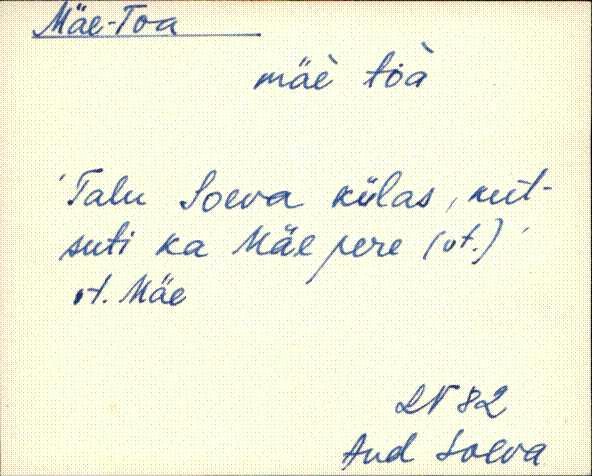 Mäe-Toa
mäè toà
'Talu Soeva külas, kut-
suti ka Mäe pere (vt.)'
vt. Mäe
LN 82
Aud Soeva